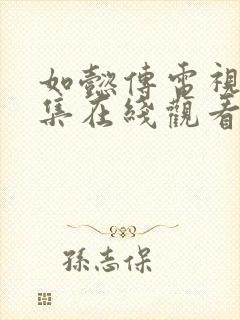 如懿傳電視
集在綫觀看
孫志保